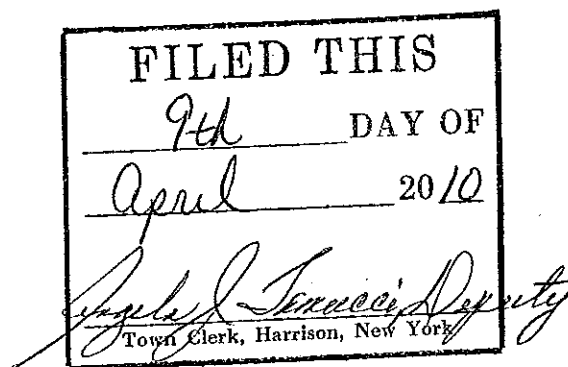 FILED THIS
9th DAY OF
April 2010
Angela J. Deputy
Town Clerk, Harrison, New York